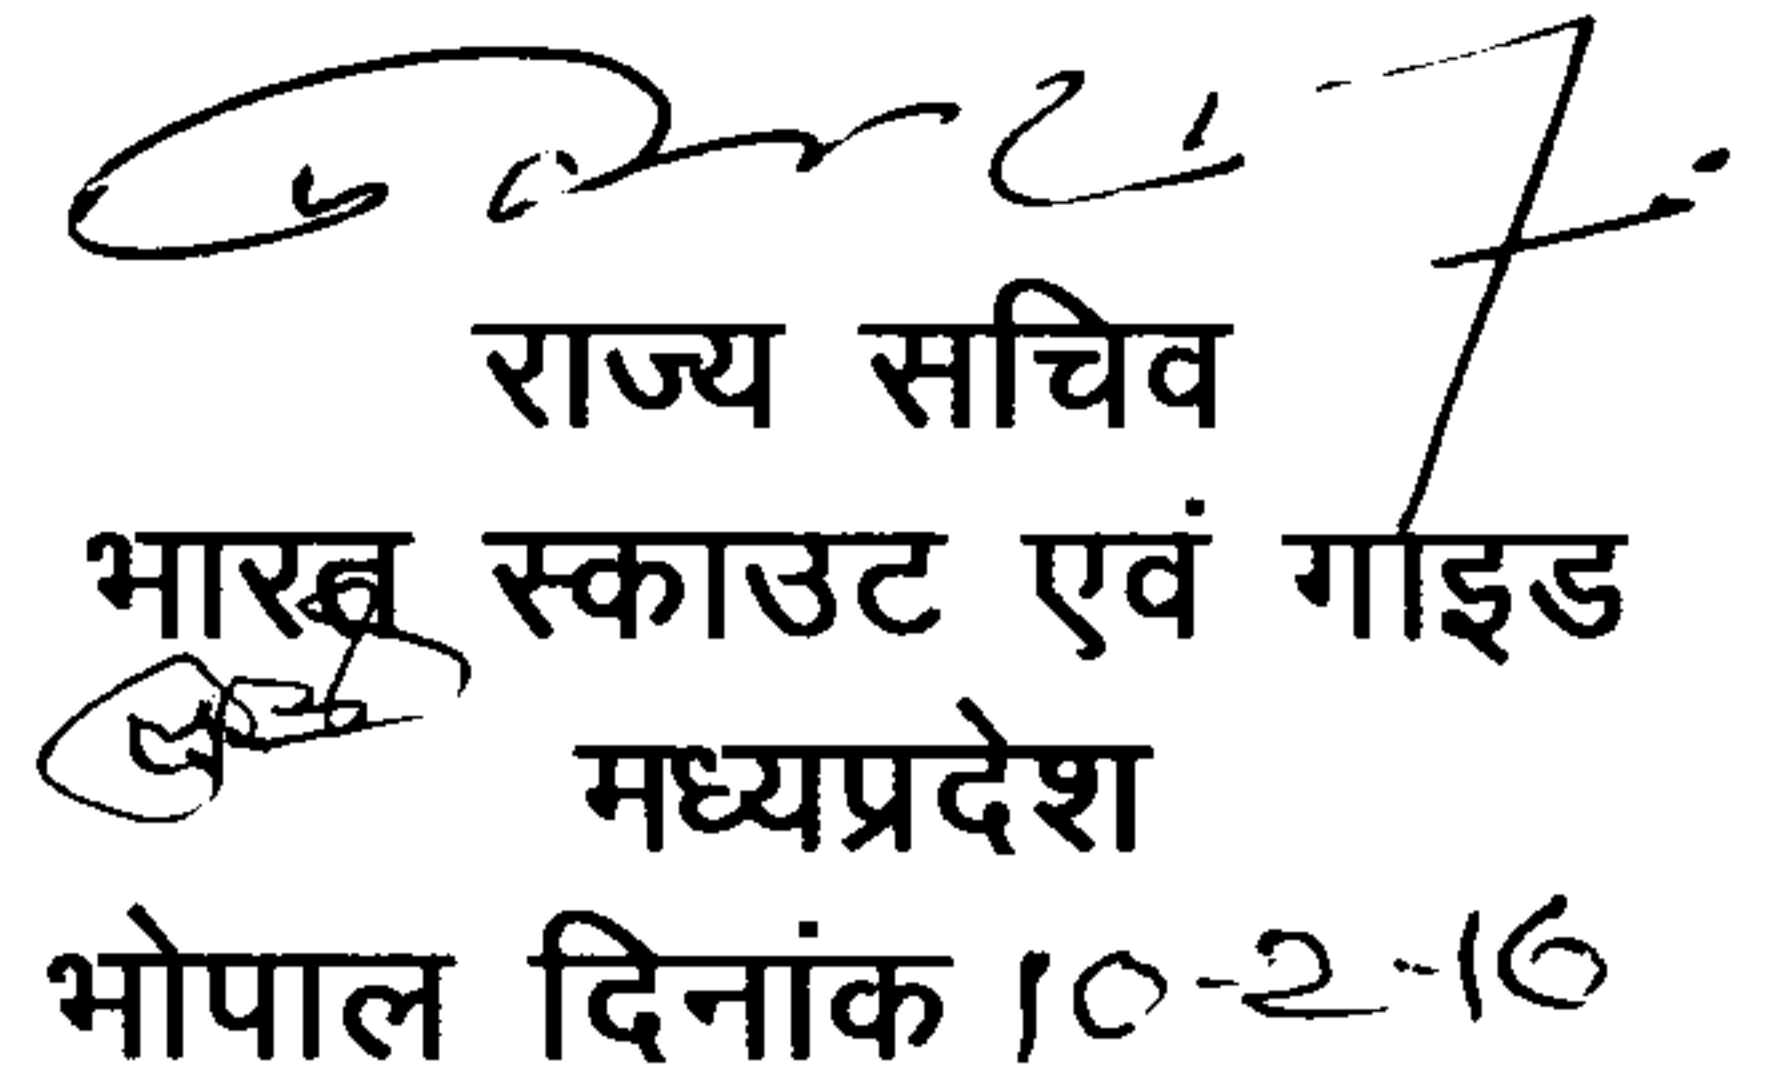 राज्य सचिव
भारत स्काउट एवं गाइड
मध्यप्रदेश
भोपाल दिनांक 10-2-16